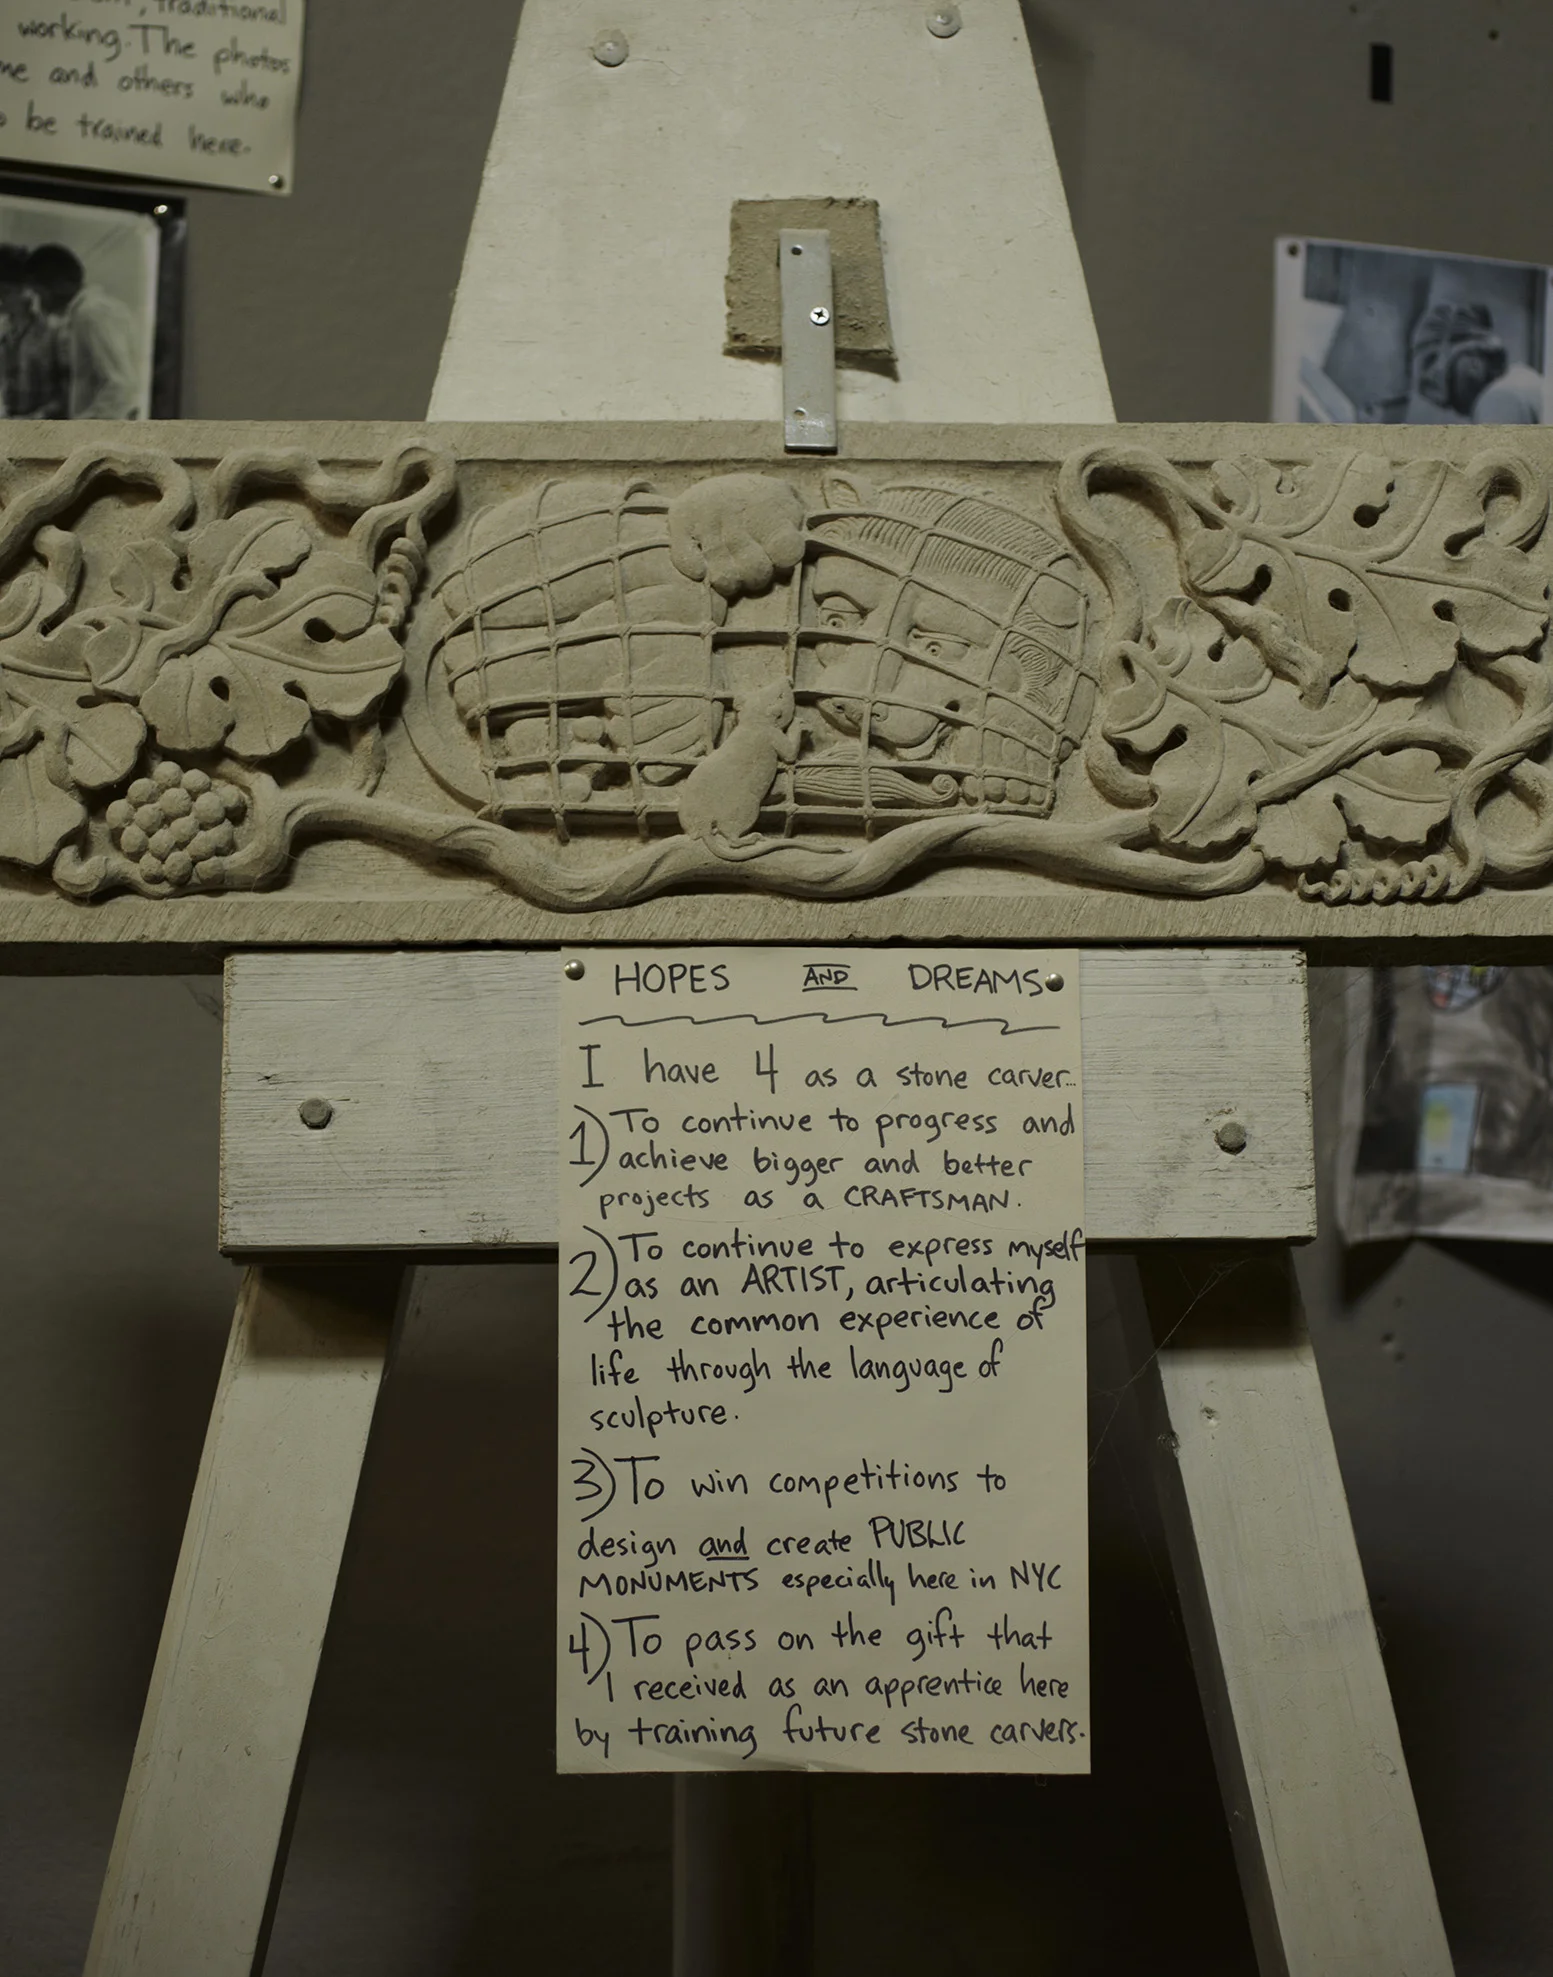 traditional
working. The photos
me and others who
be trained here.
HOPES AND DREAMS
I have 4 as a stone carver...
1) To continue to progress and
achieve bigger and better
projects as a CRAFTSMAN.
2) To continue to express myself
as an ARTIST, articulating
the common experience of
life through the language of
sculpture.
3) To win competitions to
design and create PUBLIC
MONUMENTS especially here in NYC
4) To pass on the gift that
I received as an apprentice here
by training future stone carvers.